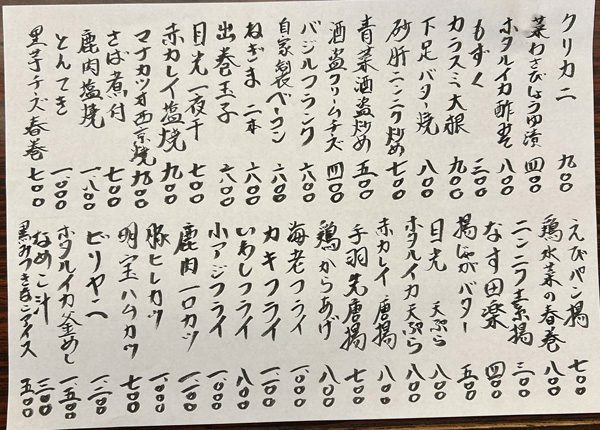 クリカニ 九〇〇
菜わさびしょうゆ漬 四〇〇
ホタルイカ酢みそ 八〇〇
もずく 三〇〇
カラスミ大根 九〇〇
下足バター焼 八〇〇
砂肝ニンニク炒め 七〇〇
青菜酒盗炒め 五〇〇
酒盗クリームチーズ 四〇〇
バジルフランク 六〇〇
自家製ベーコン 六〇〇
ねぎま 二本 六〇〇
出巻玉子 六〇〇
目光一夜干 七〇〇
赤カレイ塩焼 九〇〇
マナカツオ西京焼 九〇〇
さば煮付 七〇〇
鹿肉塩焼 一、八〇〇
とんてき 一、〇〇〇
里芋チーズ春巻 七〇〇
えびパン揚 七〇〇
鶏水菜の春巻 八〇〇
ニンニク素揚 三〇〇
なす田楽 四〇〇
揚じゃがバター 五〇〇
目光 天ぷら 八〇〇
ホタルイカ天ぷら 八〇〇
赤カレイ 唐揚 八〇〇
手羽先唐揚 七〇〇
鶏からあげ 八〇〇
海老フライ 一、〇〇〇
カキフライ 一、〇〇〇
いわしフライ 八〇〇
小アジフライ 一、〇〇〇
鹿肉一口カツ 一、〇〇〇
豚ヒレカツ 一、〇〇〇
明宝ハムカツ 七〇〇
ビリヤニ 一、二〇〇
ホタルイカ釜めし 一、五〇〇
なめこ汁 三〇〇
黒みつきなこアイス 五〇〇